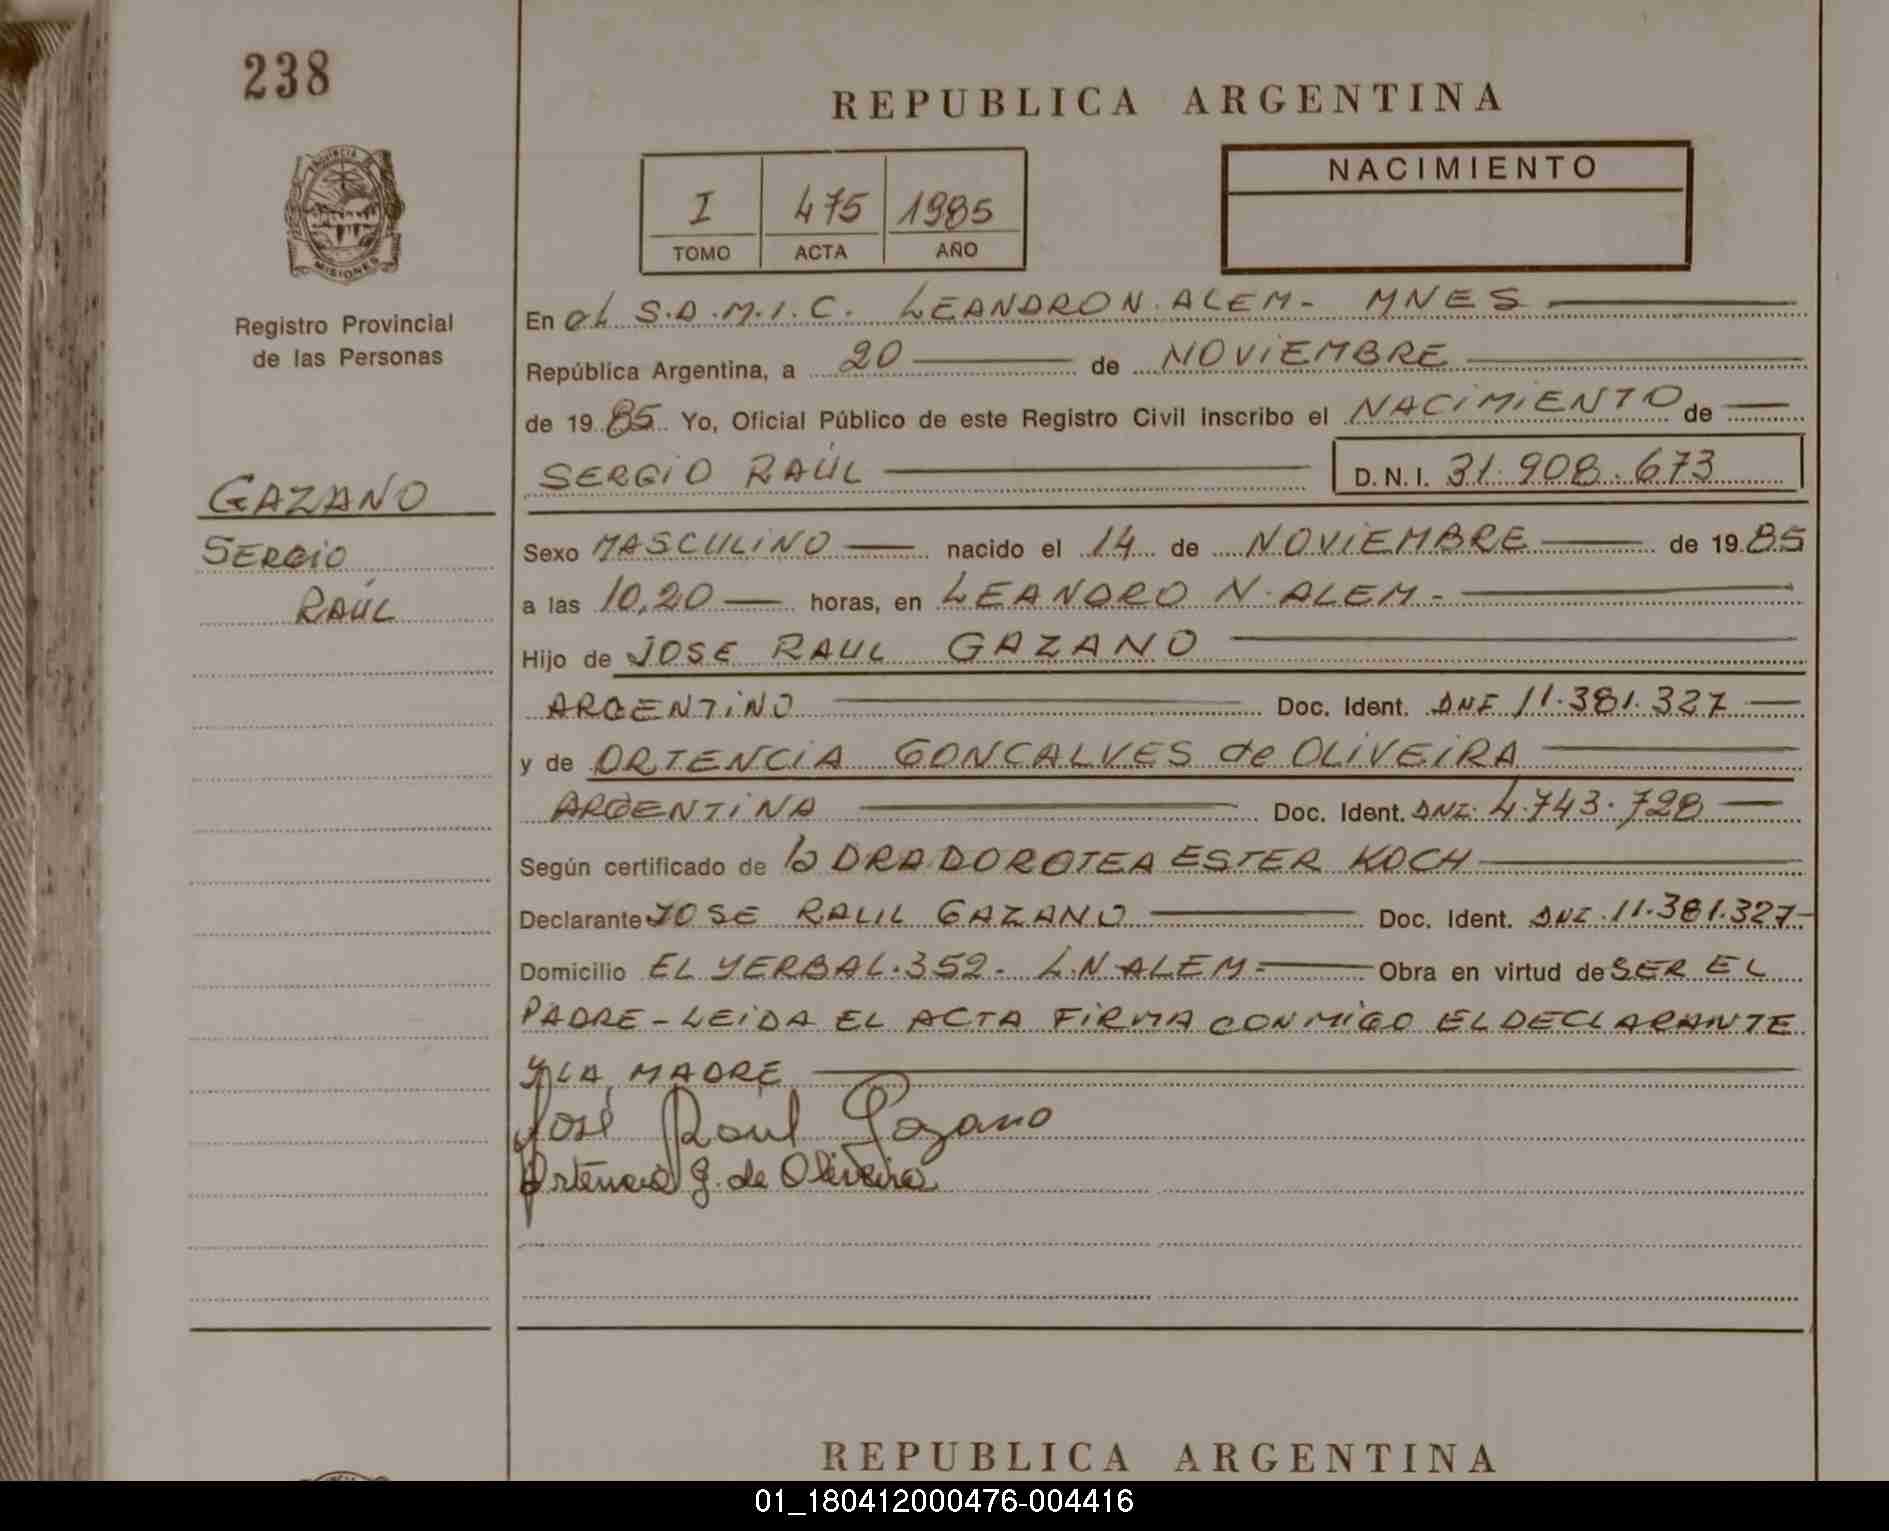 238
REPUBLICA ARGENTINA
NACIMIENTO
I 475 1985
TOMO ACTA AÑO
PROVINCIA DE
MISIONES
Registro Provincial
de las Personas
En el S.A.M.I.C. LEANDRO N. ALEM - MNES
República Argentina, a 20 de NOVIEMBRE
de 1985 Yo, Oficial Público de este Registro Civil inscribo el NACIMIENTO de
SERGIO RAÚL D.N.I. 31.908.673
GAZANO
SERGIO
RAÚL
Sexo MASCULINO nacido el 14 de NOVIEMBRE de 1985
a las 10,20 horas, en LEANDRO N. ALEM -
Hijo de JOSE RAUL GAZANO
ARGENTINO Doc. Ident. DNI 11.381.327
y de ORTENCIA GONCALVES de OLIVEIRA
ARGENTINA Doc. Ident. DNI. 4.743.728
Según certificado de la DRA DOROTEA ESTER KOCH
Declarante JOSE RAUL GAZANO Doc. Ident. DNI. 11.381.327-
Domicilio EL YERBAL. 352 - L.N ALEM - Obra en virtud de SER EL
PADRE - LEIDA EL ACTA FIRMA CONMIGO EL DECLARANTE
Y LA MADRE
José Raúl Gazano
Ortencia G. de Oliveira
REPUBLICA ARGENTINA
01_180412000476-004416